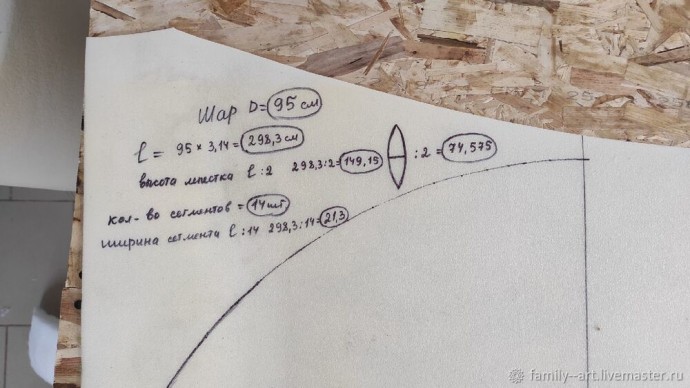 Шар D= 95 см
l = 95 × 3,14 = 298,3 см
высота лепестка l : 2 298,3 : 2 = 149,15 : 2 = 74,575
кол-во сегментов = 14 шт
ширина сегмента l : 14 298,3 : 14 = 21,3
family--art.livemaster.ru